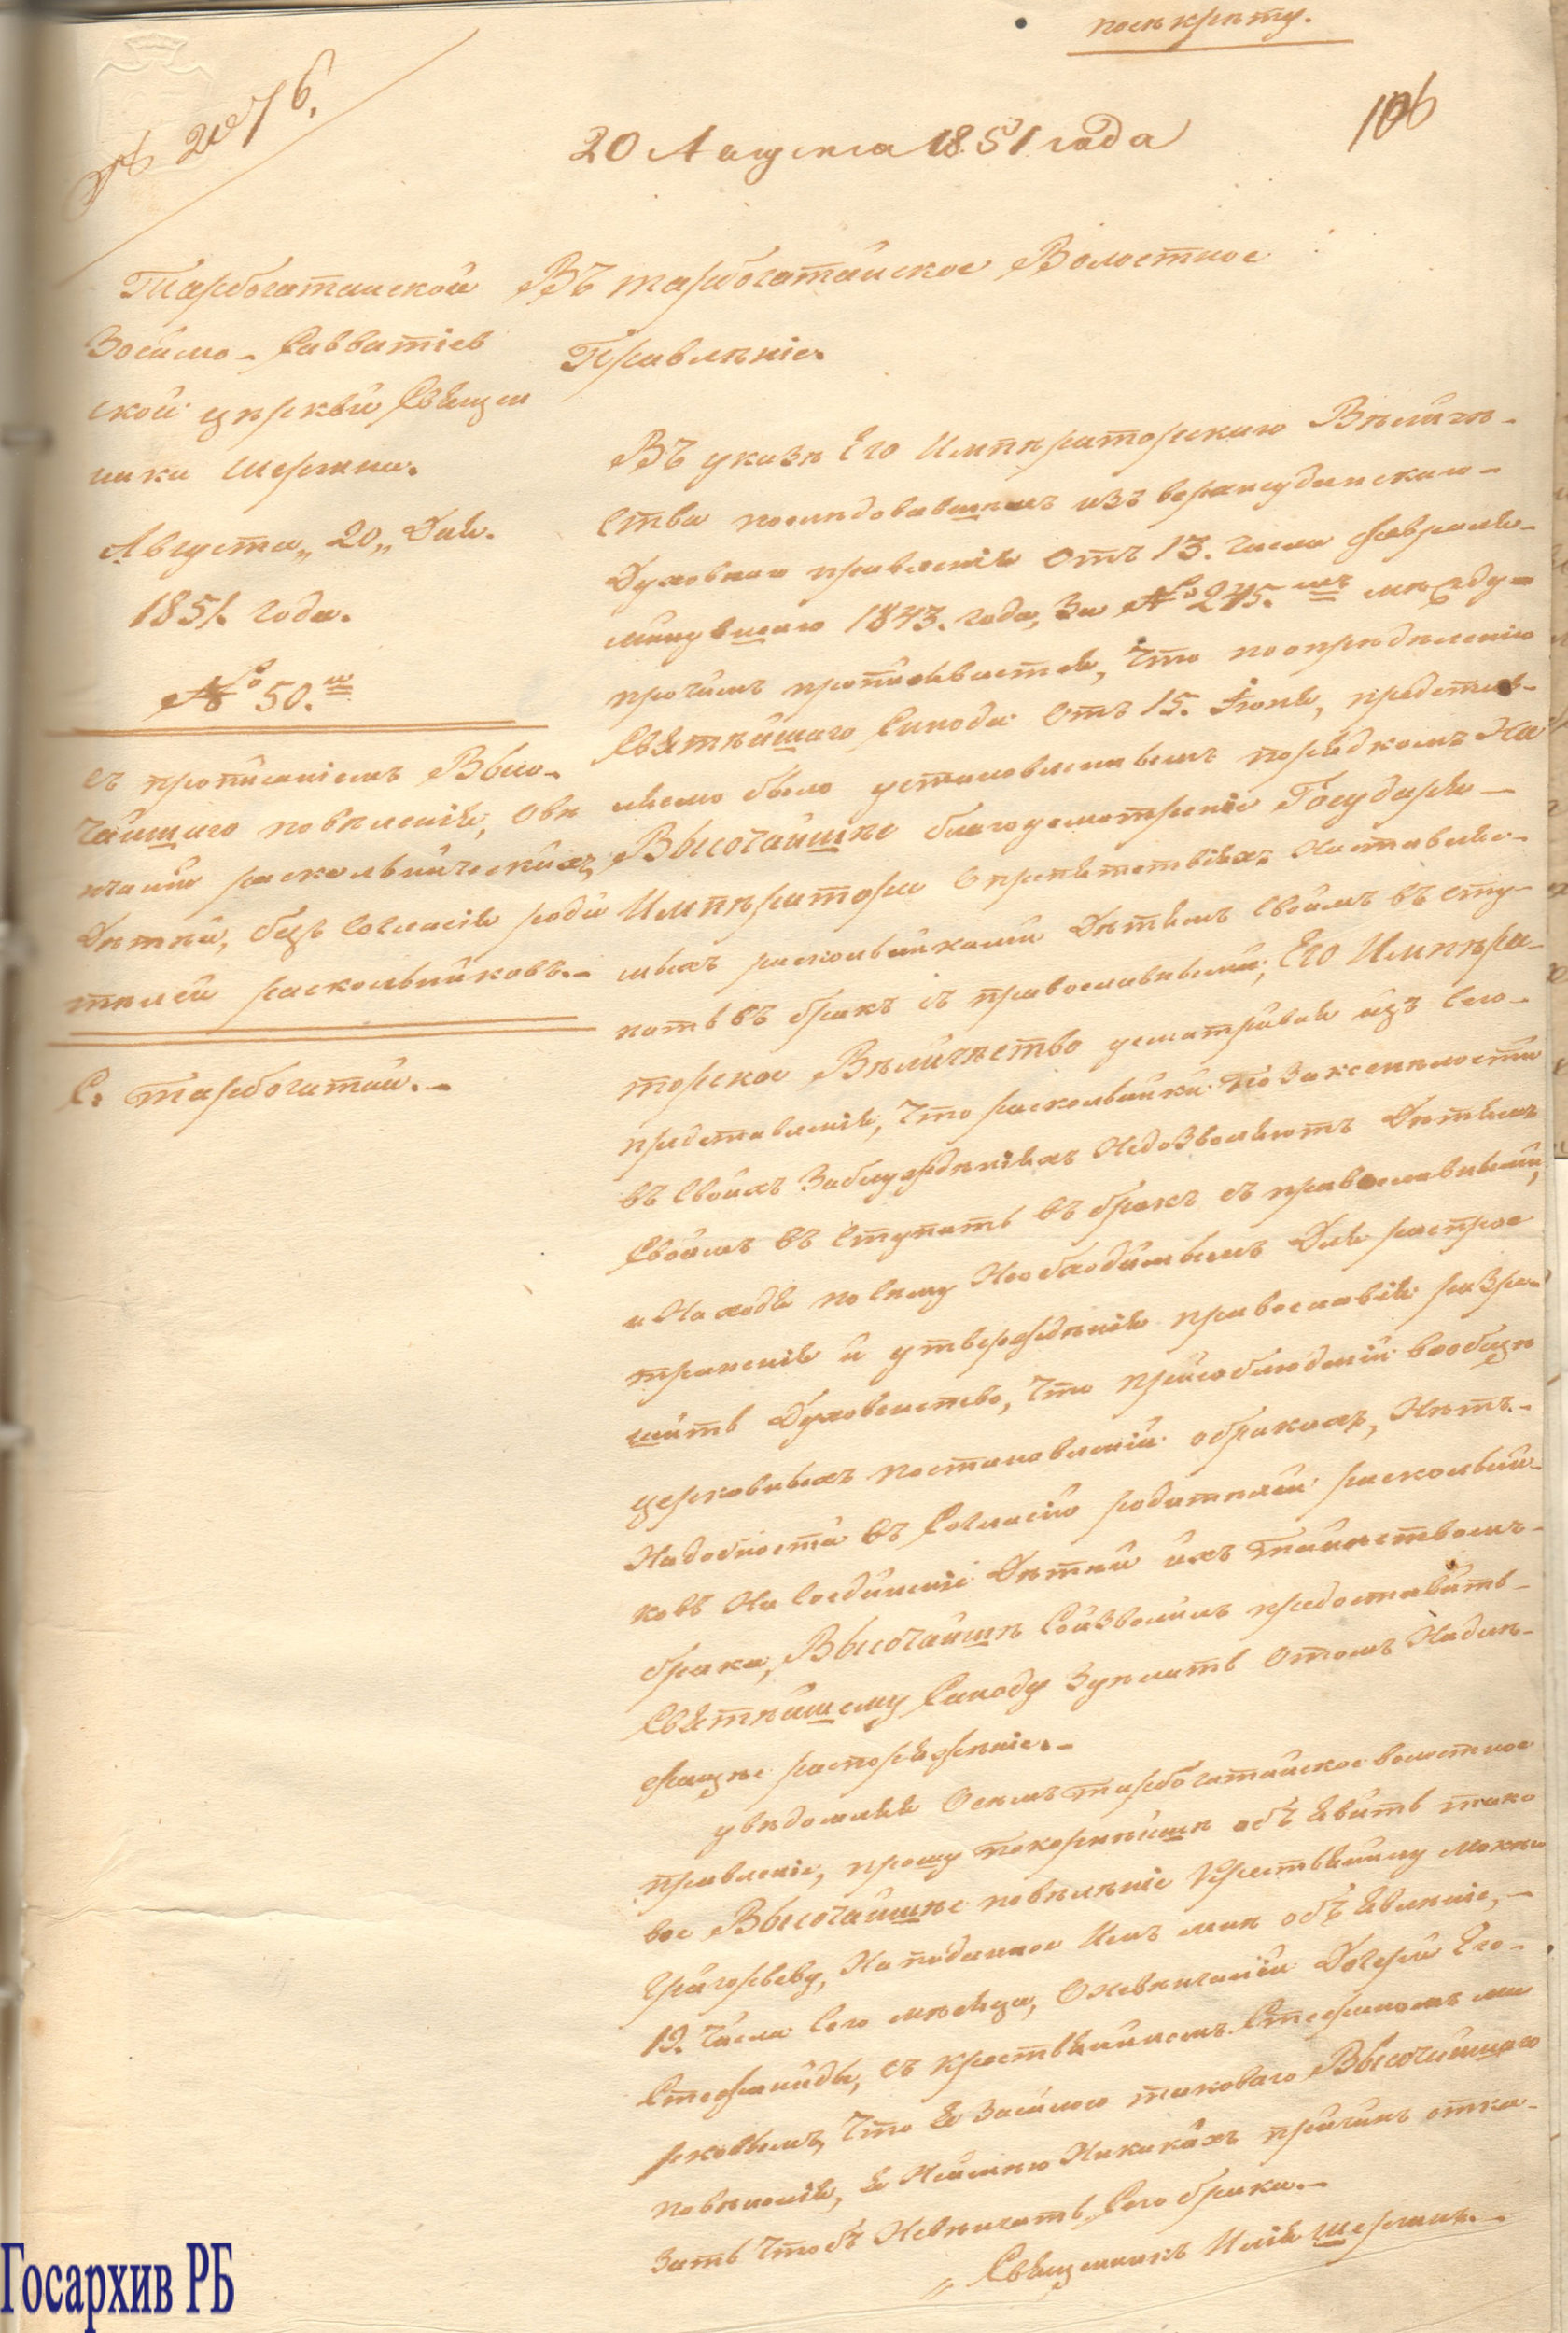 посекрету.
№ 2076.
106
20 Августа 1851 года
Тарбогатайской
Зосимо-Савватiев
ской церкви Священ
ника Шергина.
Августа „20„ Дня.
1851. года.
№ 50.й
съ прописанiемъ Высо-
чайшаго повеленiя, овѣ
нчанiи раскольническихъ
Дѣтѣй, безъ согласiя роди
телей раскольниковъ.-
С. тарбогатай.-
Въ тарбогатайское Волостное
Правленiе.
Въ указѣ Его Импѣраторскаго Вѣличѣ-
ства последовавшемъ изъ верхнеудинскаго-
Духовнаго правленiя отъ 13. числа февраля-
минувшаго 1843. года, за № 245.мъ между-
прочимъ прописывается, что поопрѣдѣленiю
Святѣйшаго Синода отъ 15. Iюня, представ-
лѣемо было установленнымъ порядкомъ на
Высочайшѣе благоусмотренiе Государя-
Импѣратора опрепятствiяхъ поставляе-
мыхъ раскольниками Дѣтямъ своимъ въ сту-
пать въ бракъ съ православными, Его Импѣра-
торское Вѣличѣство усматривая изъ сего-
представленiя, что раскольники по закоснѣлости
въ своихъ заблуждѣнiяхъ недозволяютъ Дѣтямъ
своимъ въ ступать въ бракъ съ православными,
и находя посему необходимымъ Для распрос
траненiя и утверждѣнiя православiя разрѣ
шить Духовенство, что присоблюденiи вообщѣ
церковныхъ постановленiй обракахъ, нѣтъ-
надобности въ согласiи родителей расkольни-
ковъ на соединенiе Дѣтѣй ихъ таинствомъ-
брака, Высочайшѣ соизволилъ предоставить-
Святѣйшему Синоду здѣлать отомъ надлѣ-
жащѣе распоряжѣнiе.-
увѣдомляя осемъ тарбогатайское волостное
правленiе, прошу покорнѣйшѣ объявить тако
вое Высочайшѣе повѣлѣнiе крестьянину Мокѣю
Григорьеву, на поданное имъ мнѣ объявленiе,-
19. числа сего мѣсяца, оневѣнчанiи Дочери Его-
Стефаниды, съ крестьяниномъ Стефаномъ ма
рковымъ, что я засилою таковаго Высочайшаго
повѣленiя, я неимѣю никакихъ причинъ отка-
зать чтобъ невѣнчать сего брака.-
„Священникъ Илiя Шергинъ.-
Госархив РБ